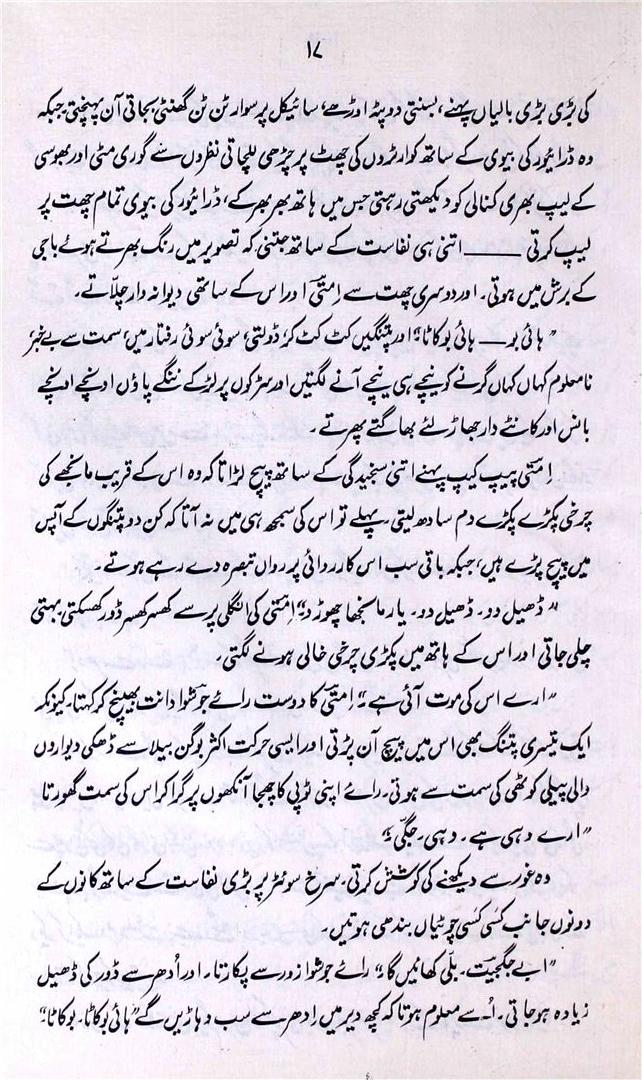 ۱۷
کی بڑی بڑی بالیاں پہنے، بسنتی دوپٹہ اوڑھے، سائیکل پر سوار ٹن ٹن گھنٹی بجاتی آن پہنچتی جبکہ
وہ ڈرائیور کی بیوی کے ساتھ کوارٹروں کی چھت پر چڑھی للچاتی نظروں سے گوری مٹی اور بھوسی
کے لیپ بھری کنالی کو دیکھتی رہتی جس میں ہاتھ بھر بھر کے، ڈرائیور کی بیوی تمام چھت پر
لیپ کرتی ——— اتنی ہی نفاست کے ساتھ جتنی کہ تصویر میں رنگ بھرتے ہوئے باجی
کے برش میں ہوتی۔ اور دوسری چھت سے اِمتی اور اس کے ساتھی دیوانہ وار چلّاتے۔
"ہائی بو — ہائی بو کاٹا" اور پتنگیں کٹ کٹ کر، ڈولتی، سوئی سوئی رفتار میں، سمت سے بے خبر،
نامعلوم کہاں کہاں گرنے کو نیچے ہی نیچے آنے لگتیں اور سڑکوں پر لڑکے ننگے پاؤں اونچے اونچے
بانس اور کانٹے دار جھاڑ لئے بھاگتے پھرتے۔
اِمتی پیپ کیپ پہنے اتنی سنجیدگی کے ساتھ پیچ لڑاتا کہ وہ اس کے قریب مانجھے کی
چرخی پکڑے پکڑے دم سادھ لیتی۔ پہلے تو اس کی سمجھ ہی میں نہ آتا کہ کن دو پتنگوں کے آپس
میں پیچ پڑے ہیں، جبکہ باقی سب اس کارروائی پر رواں تبصرہ دے رہے ہوتے۔
"ڈھیل دو۔ ڈھیل دو۔ یار مانجھا چھوڑ دو" اِمتی کی انگلی پر سے کھسر کھسر ڈور کھسکتی، بہتی
چلی جاتی اور اس کے ہاتھ میں پکڑی چرخی خالی ہونے لگتی۔
"ارے اس کی موت آئی ہے" اِمتی کا دوست رائے جوشوا دانت بھینچ کر کہتا۔ کیونکہ
ایک تیسری پتنگ بھی اس میں پیچ آن پڑتی اور ایسی حرکت اکثر بوگن بیلا سے ڈھکی دیواروں
والی پیلی کوٹھی کی سمت سے ہوتی۔ رائے اپنی ٹوپی کا چھجا آنکھوں پر گرا کر اس کی سمت گھورتا
"ارے وہی ہے۔ وہی۔ جگی"
وہ غور سے دیکھنے کی کوشش کرتی۔ سرخ سوئٹر پر بڑی نفاست کے ساتھ کانوں کے
دونوں جانب کسی کسی چوٹیاں بندھی ہوتیں۔
"ابے جگجیت۔ بلّی کھائیں گا" رائے جوشوا زور سے پکارتا۔ اور اُدھر سے ڈور کی ڈھیل
زیادہ ہو جاتی۔ اُسے معلوم ہوتا کہ کچھ دیر میں اِدھر سے سب دہاڑیں گے "ہائی بو کاٹا۔ بو کاٹا"